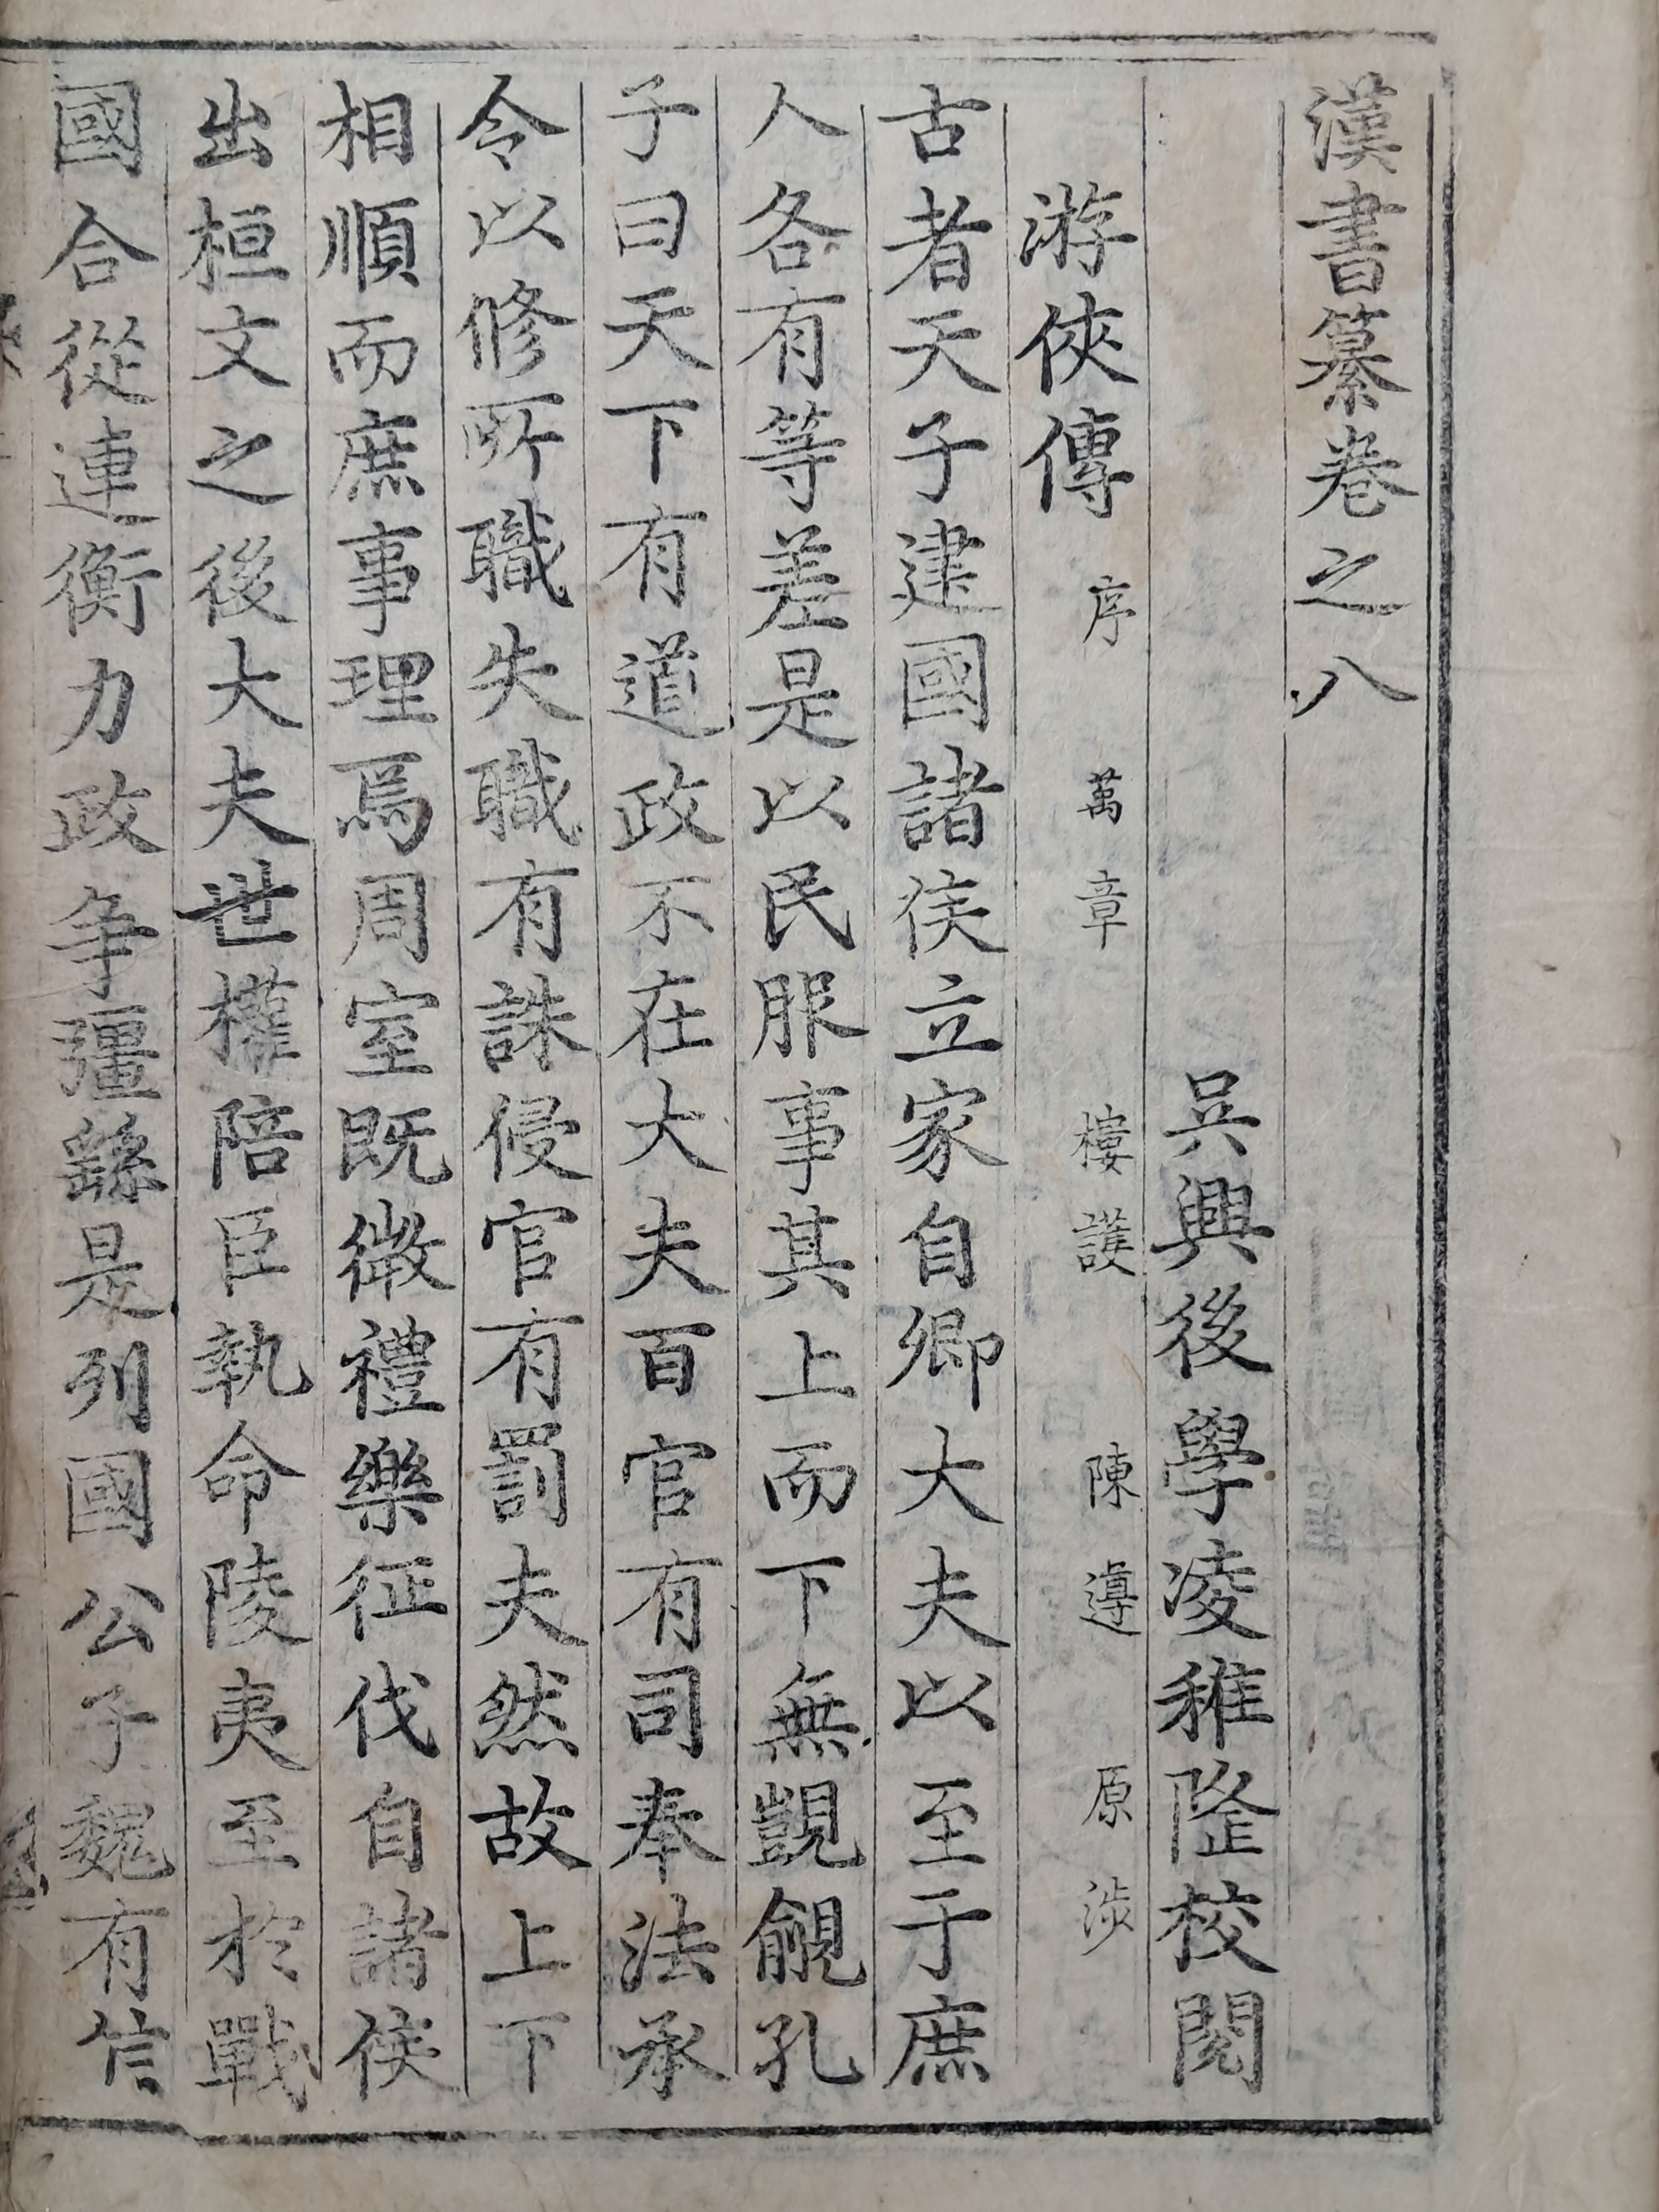 漢書纂卷之八
吳興後學凌稚隆校閱
游俠傳 序 萬章 樓護 陳遵 原涉
古者天子建國諸侯立家自卿大夫以至于庶
人各有等差是以民服事其上而下無覬覦孔
子曰天下有道政不在大夫百官有司奉法承
令以修所職失職有誅侵官有罰夫然故上下
相順而庶事理焉周室既微禮樂征伐自諸侯
出桓文之後大夫世權陪臣執命陵夷至於戰
國合從連衡力政爭彊繇是列國公子魏有信